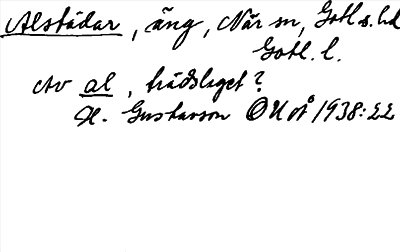 Alstädar, äng, När sn, Gotl. s. hd
Gotl. l.
Av al, trädslaget?
H. Gustavson ONoÅ 1938:22